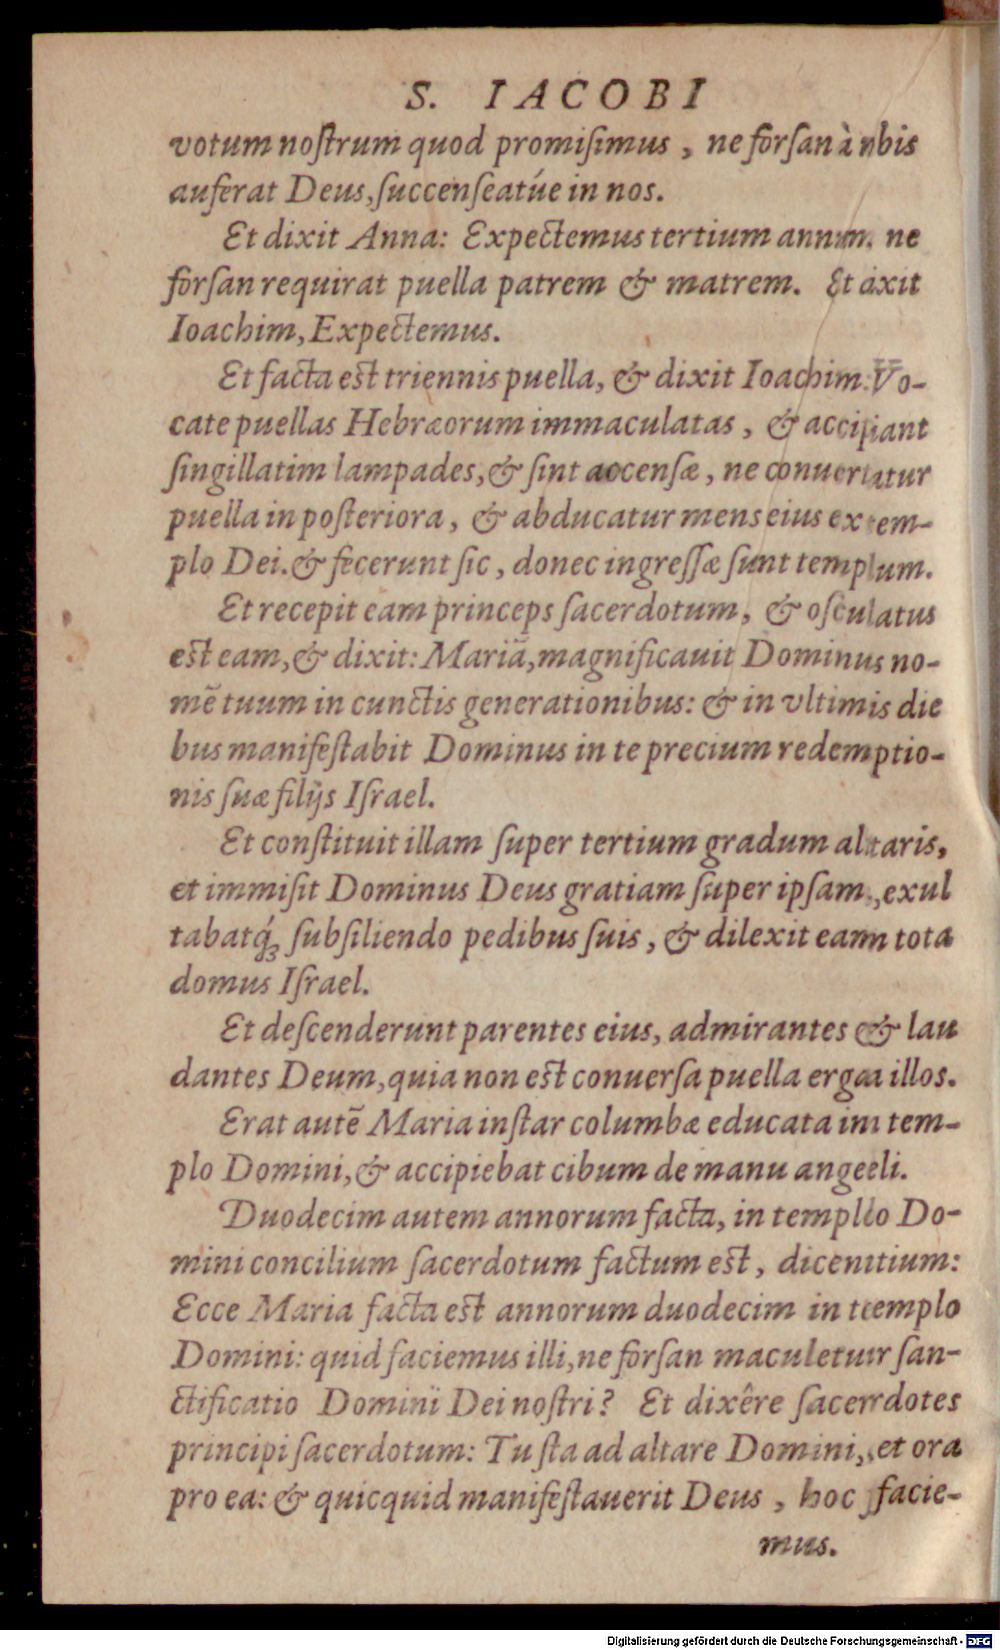 S. IACOBI
votum noſtrum quod promiſimus, ne forſan à nobis
auferat Deus, ſuccenſeatúe in nos.
Et dixit Anna: Expectemus tertium annum, ne
forſan requirat puella patrem & matrem. Et dixit
Ioachim, Expectemus.
Et facta est triennis puella, & dixit Ioachim: Vo-
cate puellas Hebræorum immaculatas, & accipiant
ſingillatim lampades, & ſint accenſæ, ne conuertatur
puella in poſteriora, & abducatur mens eius ex tem-
plo Dei. & fecerunt ſic, donec ingreſſæ ſunt templum.
Et recepit eam princeps ſacerdotum, & oſculatus
est eam, & dixit: Mariā, magnificauit Dominus no-
mē tuum in cunctis generationibus: & in vltimis die
bus manifeſtabit Dominus in te precium redemptio-
nis ſuæ filijs Iſrael.
Et conſtituit illam ſuper tertium gradum altaris,
et immiſit Dominus Deus gratiam ſuper ipſam, exul
tabatq́ꝫ ſubſiliendo pedibus ſuis, & dilexit eam tota
domus Iſrael.
Et deſcenderunt parentes eius, admirantes & lau
dantes Deum, quia non est conuerſa puella erga illos.
Erat autē Maria inſtar columbæ educata in tem-
plo Domini, & accipiebat cibum de manu angeli.
Duodecim autem annorum facta, in templo Do-
mini concilium ſacerdotum factum est, dicentium:
Ecce Maria facta est annorum duodecim in templo
Domini: quid faciemus illi, ne forſan maculetur ſan-
ctificatio Domini Dei noſtri? Et dixêre ſacerdotes
principi ſacerdotum: Tu ſta ad altare Domini, et ora
pro ea: & quicquid manifeſtauerit Deus, hoc facie-
mus.
Digitalisierung gefördert durch die Deutsche Forschungsgemeinschaft - DFG